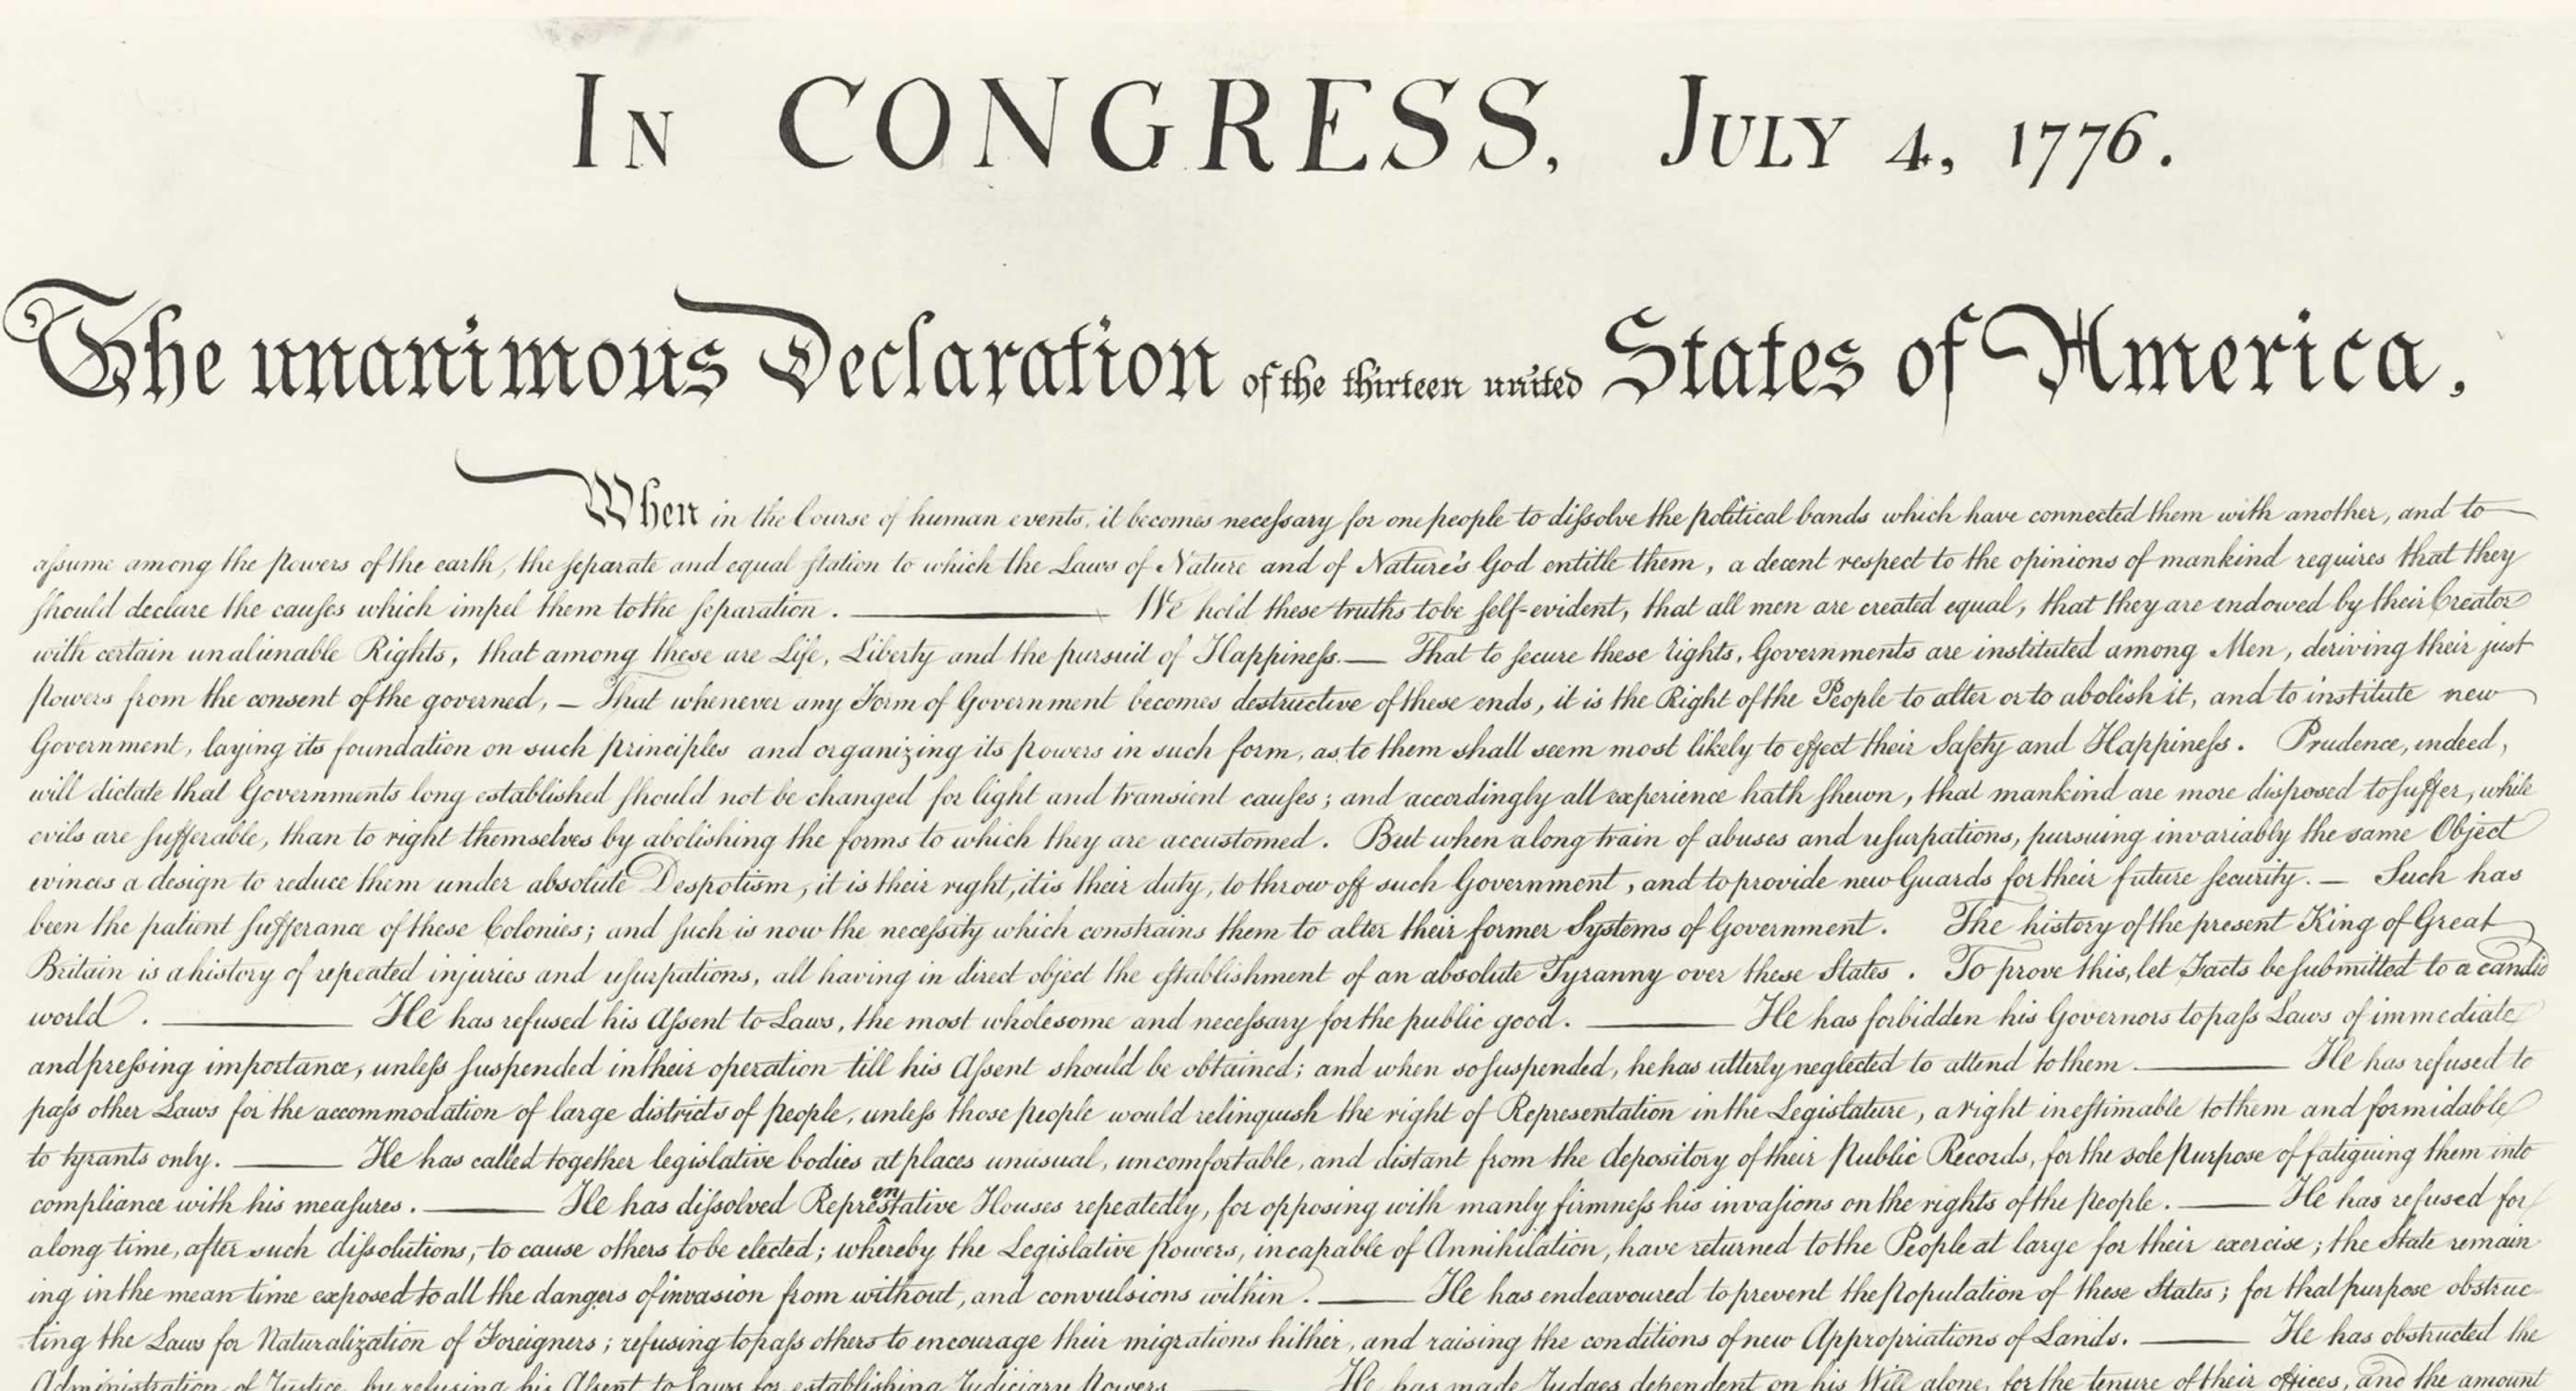 In CONGRESS, July 4, 1776.
The unanimous Declaration of the thirteen united States of America,
When in the Course of human events, it becomes necessary for one people to dissolve the political bands which have connected them with another, and to
assume among the powers of the earth, the separate and equal station to which the Laws of Nature and of Nature's God entitle them, a decent respect to the opinions of mankind requires that they
should declare the causes which impel them to the separation. ——— We hold these truths to be self-evident, that all men are created equal, that they are endowed by their Creator
with certain unalienable Rights, that among these are Life, Liberty and the pursuit of Happiness.— That to secure these rights, Governments are instituted among Men, deriving their just
powers from the consent of the governed, — That whenever any Form of Government becomes destructive of these ends, it is the Right of the People to alter or to abolish it, and to institute new
Government, laying its foundation on such principles and organizing its powers in such form, as to them shall seem most likely to effect their Safety and Happiness. Prudence, indeed,
will dictate that Governments long established should not be changed for light and transient causes; and accordingly all experience hath shewn, that mankind are more disposed to suffer, while
evils are sufferable, than to right themselves by abolishing the forms to which they are accustomed. But when a long train of abuses and usurpations, pursuing invariably the same Object
evinces a design to reduce them under absolute Despotism, it is their right, it is their duty, to throw off such Government, and to provide new Guards for their future security. — Such has
been the patient sufferance of these Colonies; and such is now the necessity which constrains them to alter their former Systems of Government. The history of the present King of Great
Britain is a history of repeated injuries and usurpations, all having in direct object the establishment of an absolute Tyranny over these States. To prove this, let Facts be submitted to a candid
world. ——— He has refused his Assent to Laws, the most wholesome and necessary for the public good. ——— He has forbidden his Governors to pass Laws of immediate
and pressing importance, unless suspended in their operation till his Assent should be obtained; and when so suspended, he has utterly neglected to attend to them. ——— He has refused to
pass other Laws for the accommodation of large districts of people, unless those people would relinquish the right of Representation in the Legislature, a right inestimable to them and formidable
to tyrants only. ——— He has called together legislative bodies at places unusual, uncomfortable, and distant from the depository of their Public Records, for the sole purpose of fatiguing them into
compliance with his measures. ——— He has dissolved Representative Houses repeatedly, for opposing with manly firmness his invasions on the rights of the people. ——— He has refused for
a long time, after such dissolutions, to cause others to be elected; whereby the Legislative powers, incapable of Annihilation, have returned to the People at large for their exercise; the State remain
ing in the mean time exposed to all the dangers of invasion from without, and convulsions within. ——— He has endeavoured to prevent the population of these States; for that purpose obstruc
ting the Laws for Naturalization of Foreigners; refusing to pass others to encourage their migrations hither, and raising the conditions of new Appropriations of Lands. ——— He has obstructed the
Administration of Justice, by refusing his Assent to Laws for establishing Judiciary powers. ——— He has made Judges dependent on his Will alone, for the tenure of their offices, and the amount